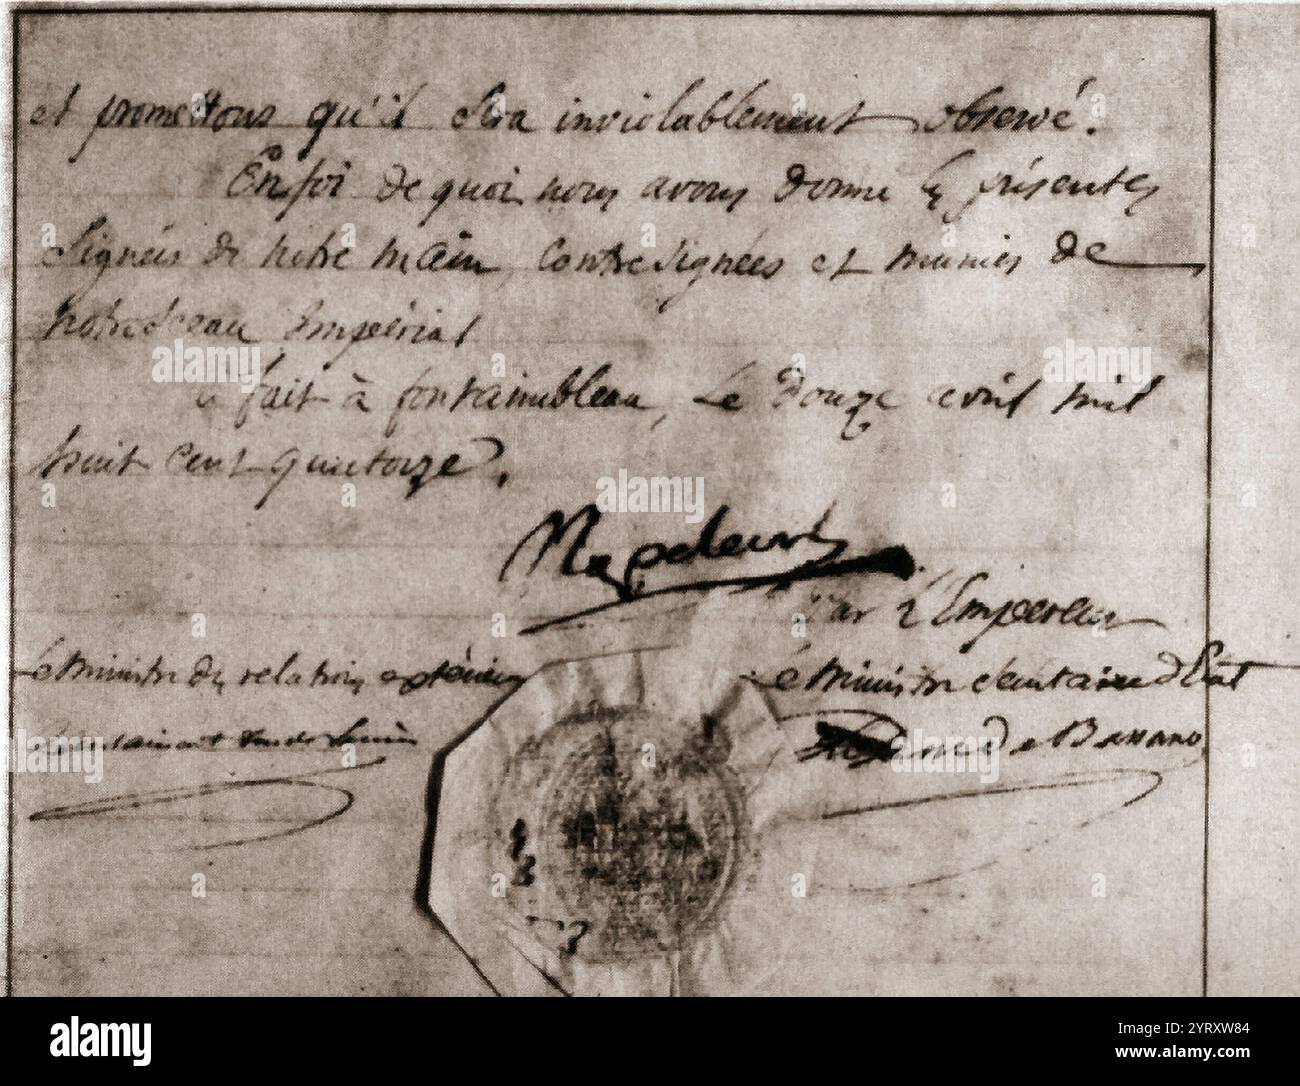 et promettons qu'il sera inviolablement observé.
En foi de quoi nous avons donné les présentes
Signées de notre main, contresignées et munies de
notre sceau Impérial
fait à fontainebleau, le douze avril mil
huit cent quatorze.
Napoleon
Par L'Empereur
Le Ministre des relations extérieures
Le Ministre Secrétaire d'Etat
Caulaincourt duc de Vicence
Duc de Bassano
alamy
Image ID: 2YRXW84
www.alamy.com